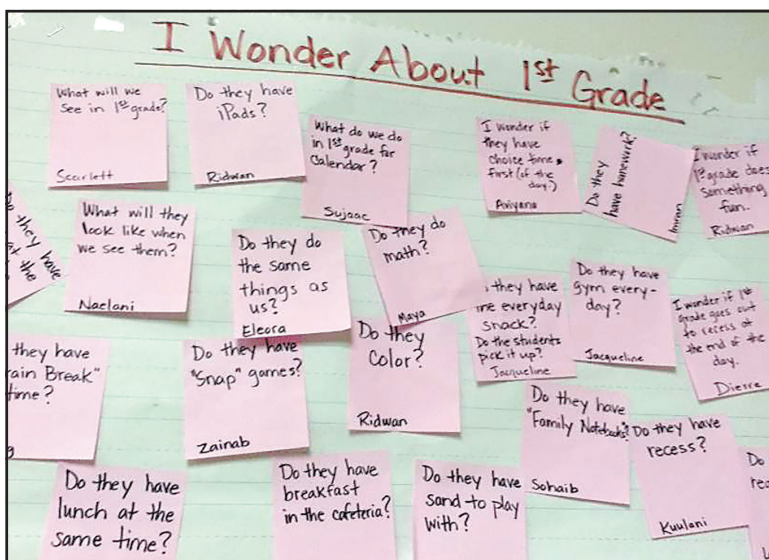 I Wonder About 1st Grade
What will we
see in 1st grade?
Scarlett
Do they have
iPads?
Ridwan
What do we do
in 1st grade for
Calendar?
Sujaac
I wonder if
they have
choice time
first (of the
day.)
Aviyana
Do they
have homework?
Imran
I wonder if
1st grade does
something
fun.
Ridwan
they have
at the
What will they
look like when
we see them?
Naelani
Do they do
the same
things as
us?
Eleora
Do they do
math?
Maya
they have
the everyday
snack?
Do the students
pick it up?
Jacqueline
Do they have
gym every-
day?
Jacqueline
I wonder if 1st
grade goes out
to recess at
the end of the
day.
Dierre
they have
ain Break"
time?
Do they have
"Snap" games?
Zainab
Do they
Color?
Ridwan
Do they have
"Family Notebooks?"
Sohaib
Do they have
recess?
Kuulani
Do they have
lunch at the
same time?
Do they have
breakfast
in the cafeteria?
Do they have
sand to play
with?
Do
rec